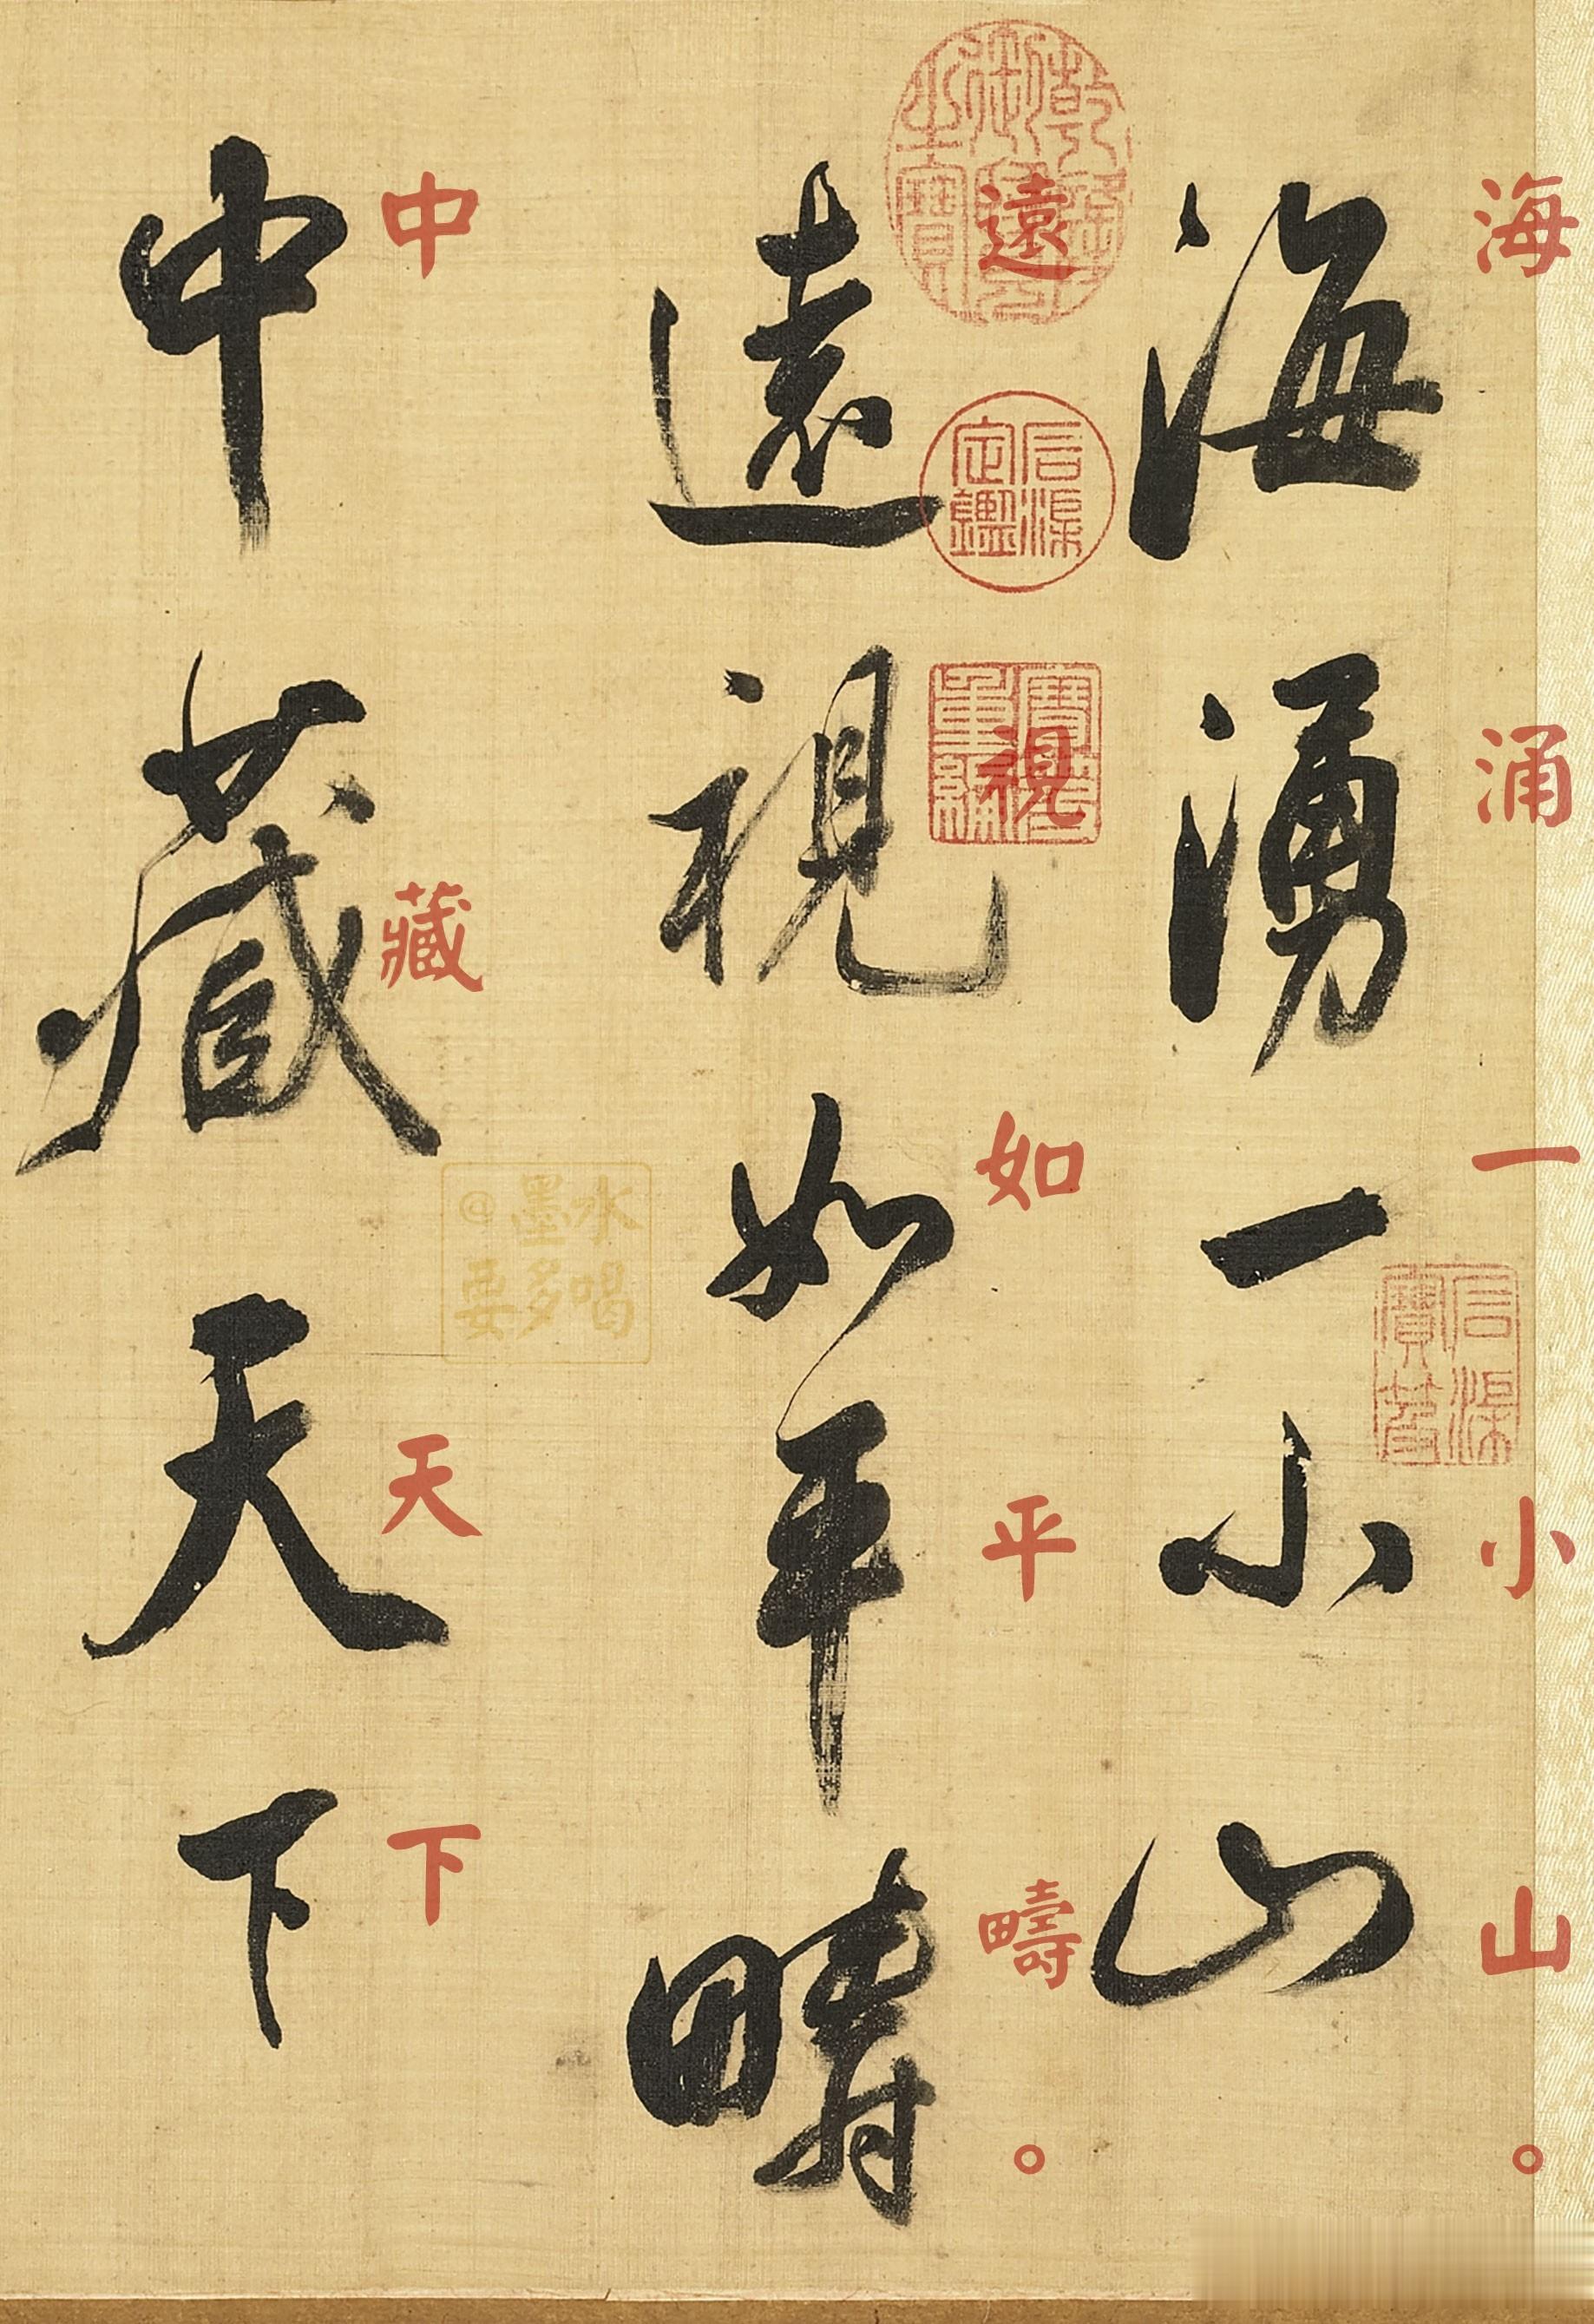 海湧一小山
海涌一小山。
遠視如平疇
遠視如平疇。
中藏天天下
中藏天天下
乾隆御覽之寶
石渠定鑑
寶笈重編
石渠寶笈
@墨水
要多喝